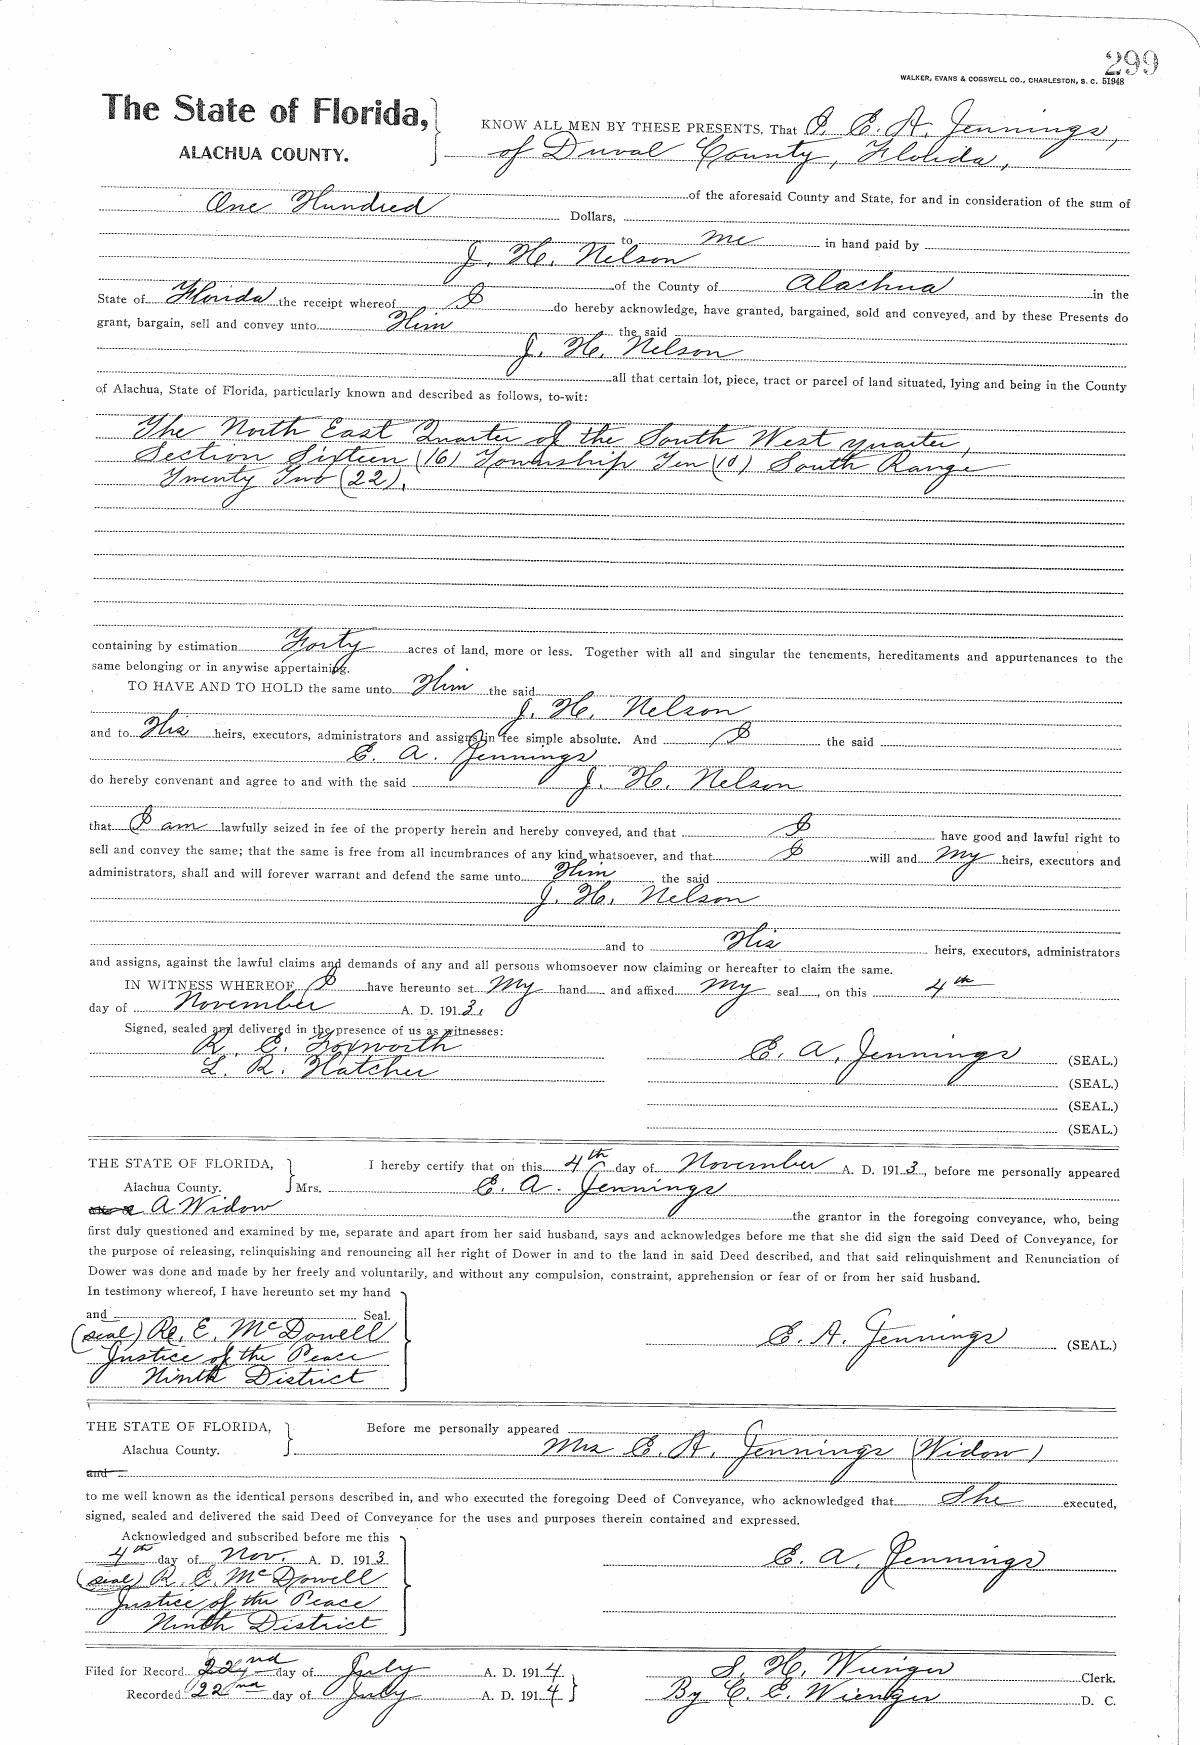 299
WALKER, EVANS & COGSWELL CO., CHARLESTON, S. C. 51948
The State of Florida,
ALACHUA COUNTY.
KNOW ALL MEN BY THESE PRESENTS, That I, E. A. Jennings,
of Duval County, Florida,
of the aforesaid County and State, for and in consideration of the sum of
One Hundred Dollars,
to me in hand paid by
J. H. Nelson
of the County of Alachua in the
State of Florida the receipt whereof I do hereby acknowledge, have granted, bargained, sold and conveyed, and by these Presents do
grant, bargain, sell and convey unto Him the said
J. H. Nelson
all that certain lot, piece, tract or parcel of land situated, lying and being in the County
of Alachua, State of Florida, particularly known and described as follows, to-wit:
The North East Quarter of the South West quarter,
Section Sixteen (16) Township Ten (10) South Range
Twenty Two (22).
containing by estimation Forty acres of land, more or less. Together with all and singular the tenements, hereditaments and appurtenances to the
same belonging or in anywise appertaining.
TO HAVE AND TO HOLD the same unto Him the said
J. H. Nelson
and to His heirs, executors, administrators and assigns in fee simple absolute. And I the said
E. A. Jennings
do hereby convenant and agree to and with the said J. H. Nelson
that I am lawfully seized in fee of the property herein and hereby conveyed, and that I have good and lawful right to
sell and convey the same; that the same is free from all incumbrances of any kind whatsoever, and that I will and My heirs, executors and
administrators, shall and will forever warrant and defend the same unto Him the said
J. H. Nelson
and to His heirs, executors, administrators
and assigns, against the lawful claims and demands of any and all persons whomsoever now claiming or hereafter to claim the same.
IN WITNESS WHEREOF, I have hereunto set My hand and affixed My seal, on this 4th
day of November A. D. 1913,
Signed, sealed and delivered in the presence of us as witnesses:
R. E. Foxworth
L. R. Hatcher
E. A. Jennings (SEAL.)
(SEAL.)
(SEAL.)
(SEAL.)
THE STATE OF FLORIDA,
Alachua County.
I hereby certify that on this 4th day of November A. D. 1913, before me personally appeared
Mrs. E. A. Jennings
A Widow the grantor in the foregoing conveyance, who, being
first duly questioned and examined by me, separate and apart from her said husband, says and acknowledges before me that she did sign the said Deed of Conveyance, for
the purpose of releasing, relinquishing and renouncing all her right of Dower in and to the land in said Deed described, and that said relinquishment and Renunciation of
Dower was done and made by her freely and voluntarily, and without any compulsion, constraint, apprehension or fear of or from her said husband.
In testimony whereof, I have hereunto set my hand
and Seal.
(seal) R. E. McDowell
Justice of the Peace
Ninth District
E. A. Jennings (SEAL.)
THE STATE OF FLORIDA,
Alachua County.
Before me personally appeared
Mrs E. A. Jennings (Widow)
and
to me well known as the identical persons described in, and who executed the foregoing Deed of Conveyance, who acknowledged that She executed,
signed, sealed and delivered the said Deed of Conveyance for the uses and purposes therein contained and expressed.
Acknowledged and subscribed before me this
4th day of Nov. A. D. 1913
(seal) R. E. McDowell
Justice of the Peace
Ninth District
E. A. Jennings
Filed for Record 22nd day of July A. D. 1914
Recorded 22nd day of July A. D. 1914
S. H. Wienges Clerk.
By C. E. Wienges D. C.